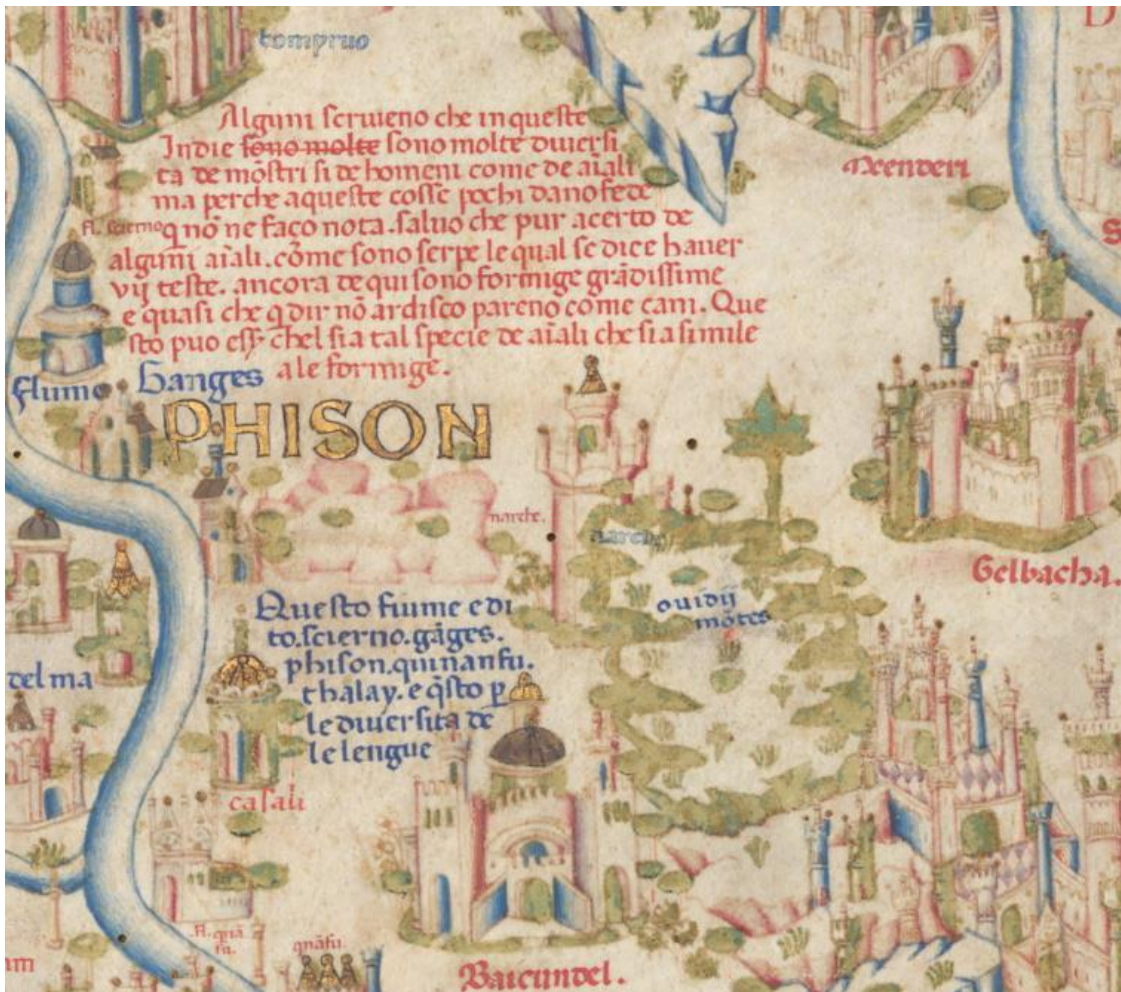 tompruo
Alguni scriueno che in queste
Indie sono molte sono molte diuersi
ta de mõstri si de homeni come de aĩali
ma perche a queste cosse pochi dano fede
fl. scierno
q nõ ne faço nota. saluo che pur acerto de
alguni aĩali. cõme sono serpe le qual se dice hauer
vij teste. ancora de qui sono formige grãdissime
e quasi che q dir nõ ardisco pareno come cani. Que
sto puo esser chel sia tal specie de aĩali che sia simile
a le formige.
Menderi
flumo Ganges
PHISON
narche.
Gelbacha.
Questo fiume e di
to. scierno. gãges.
phison. quinanfu.
thalay. e q̃sto p̱
le diuersita de
le lengue
ouidij
mõtes
del ma
casali
fl. quiã
fu.
qnãfu
Baicundel.